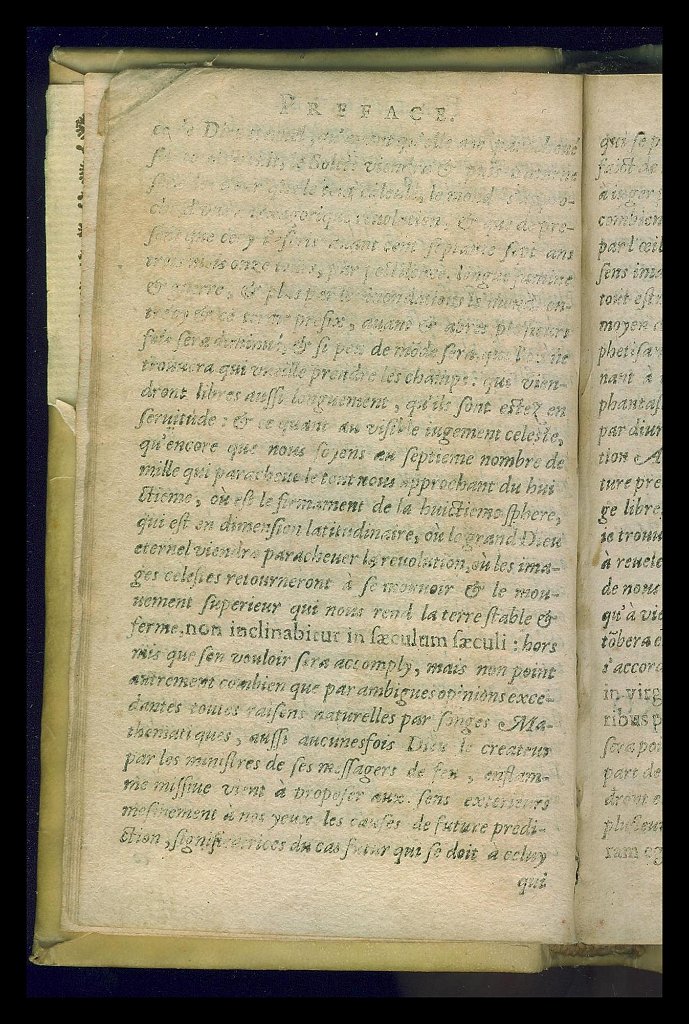 PREFACE.
de Dieu eternel,
le Soleil viendra & puis Saturne
le monde
revolution, &
sent que cecy i'escris avant cent septante sept ans
trois mois onze iours, par pestilence, longue famine
& guerre, & plus par les inondations le monde en-
tre cy & ce terme prefix, avant & apres plusieurs
fois sera diminué, & si peu de mōde sera, que l'on ne
trouuera qui vueille prendre les champs: qui vien-
dront libres aussi longuement, qu'ils sont estez en
seruitude: & ce quant au visible iugement celeste,
qu'encore que nous soyens au septieme nombre de
mille qui paracheue le tout nous approchant du hui
ctieme, où est le firmament de la huictieme sphere,
qui est en dimension latitudinaire, où le grand Dieu
eternel viendra parachever la revolution, où les ima-
ges celestes retourneront à se mouuoir & le mou-
uement superieur qui nous rend la terre stable &
ferme, non inclinabitur in sæculum sæculi: hors
mis que sen vouloir sera accomply, mais non point
autrement combien que par ambigues opinions exce-
dantes toutes raisens naturelles par songes Ma-
thematiques, aussi aucunesfois Dieu le createur
par les ministres de ses messagers de feu, enflam-
me missiue vient à proposer aux sens exterieurs
mesmement à nos yeux les causes de future predi-
ction, significatrices du cas futur qui se doit à celuy
qui
qui se p
faict de
à iuger
combien
par l'œil
sens ima
tout est
moyen
phetisa
nant à
phantas
par diui
tion A
ture pre
ge libre
ie trouu
à reuele
de nous
qu'à vie
tōbera e
s'accord
in virg
ribus p
sera po
part de
dront e
plusieu
ram eg